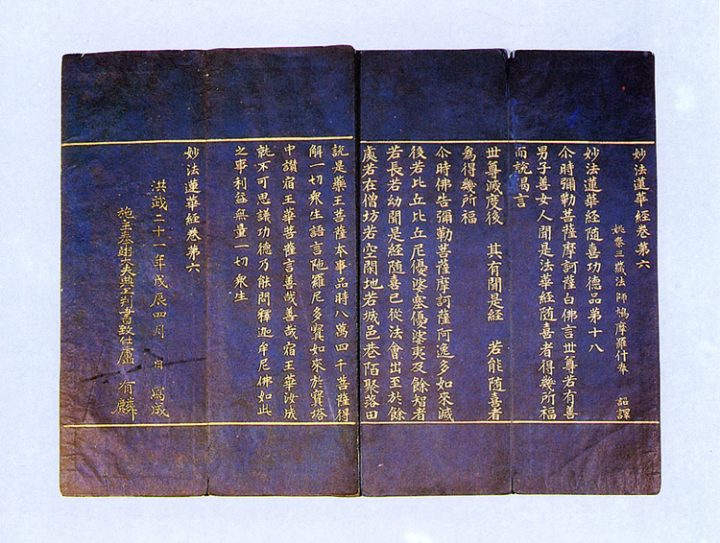 妙法蓮華經卷第六
姚秦三藏法師鳩摩羅什奉 詔譯
妙法蓮華經随喜功德品第十八
尒時彌勒菩薩摩訶薩白佛言世尊若有善
男子善女人聞是法華經随喜者得幾所福
而說偈言
世尊滅度後 其有聞是經 若能随喜者
為得幾所福
尒時佛告彌勒菩薩摩訶薩阿逸多如來滅
後若比丘比丘尼優婆塞優婆夷及餘智者
若長若幼聞是經随喜已從法會出至於餘
處若在僧坊若空閑地若城邑巷陌聚落田
說是藥王菩薩本事品時八萬四千菩薩得
解一切衆生語言陁羅尼多寶如來於寶塔
中讃宿王華菩薩言善哉善哉宿王華汝成
就不可思議功德乃能問釋迦牟尼佛如此
之事利益無量一切衆生
妙法蓮華經卷第六
洪武二十一年戊辰四月 日 寫成
施主奉翊大夫典工判書致仕盧 有麟